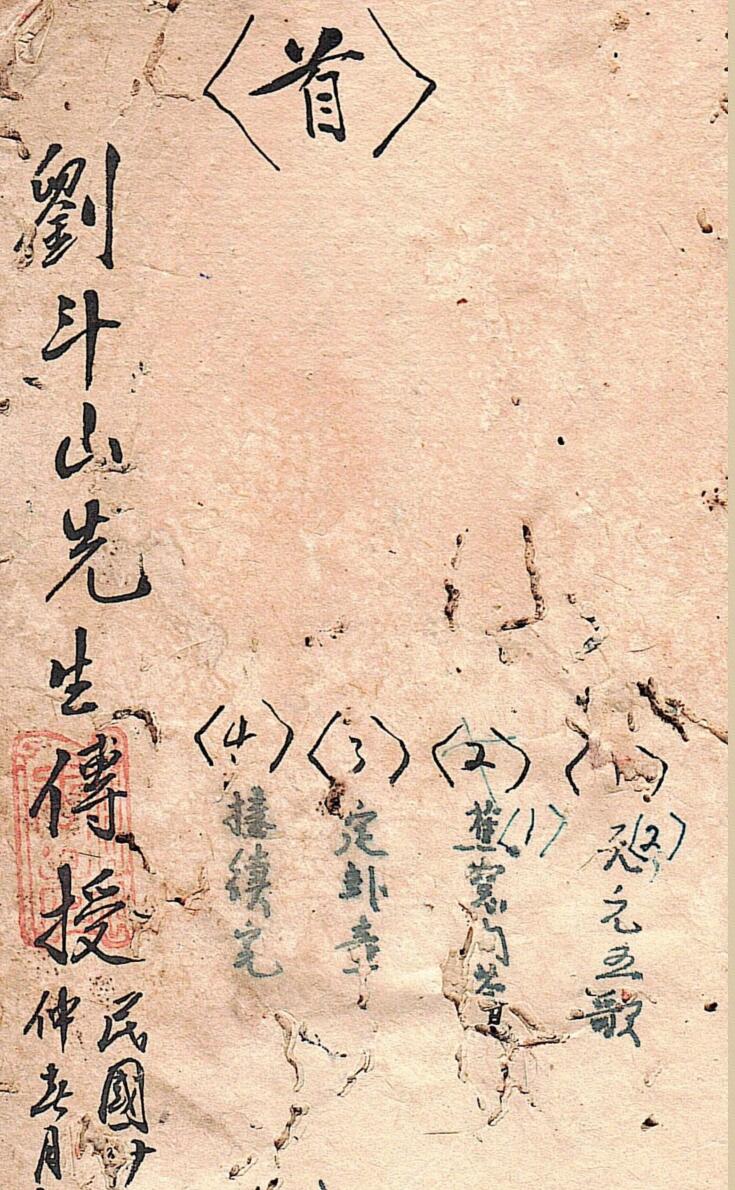 〈首〉
〈1〉
〈2〉天元五歌
〈2〉
〈1〉蕉窓问答
〈3〉
定卦章
〈4〉
接續完
劉斗山先生傳授
民國廿
仲春月